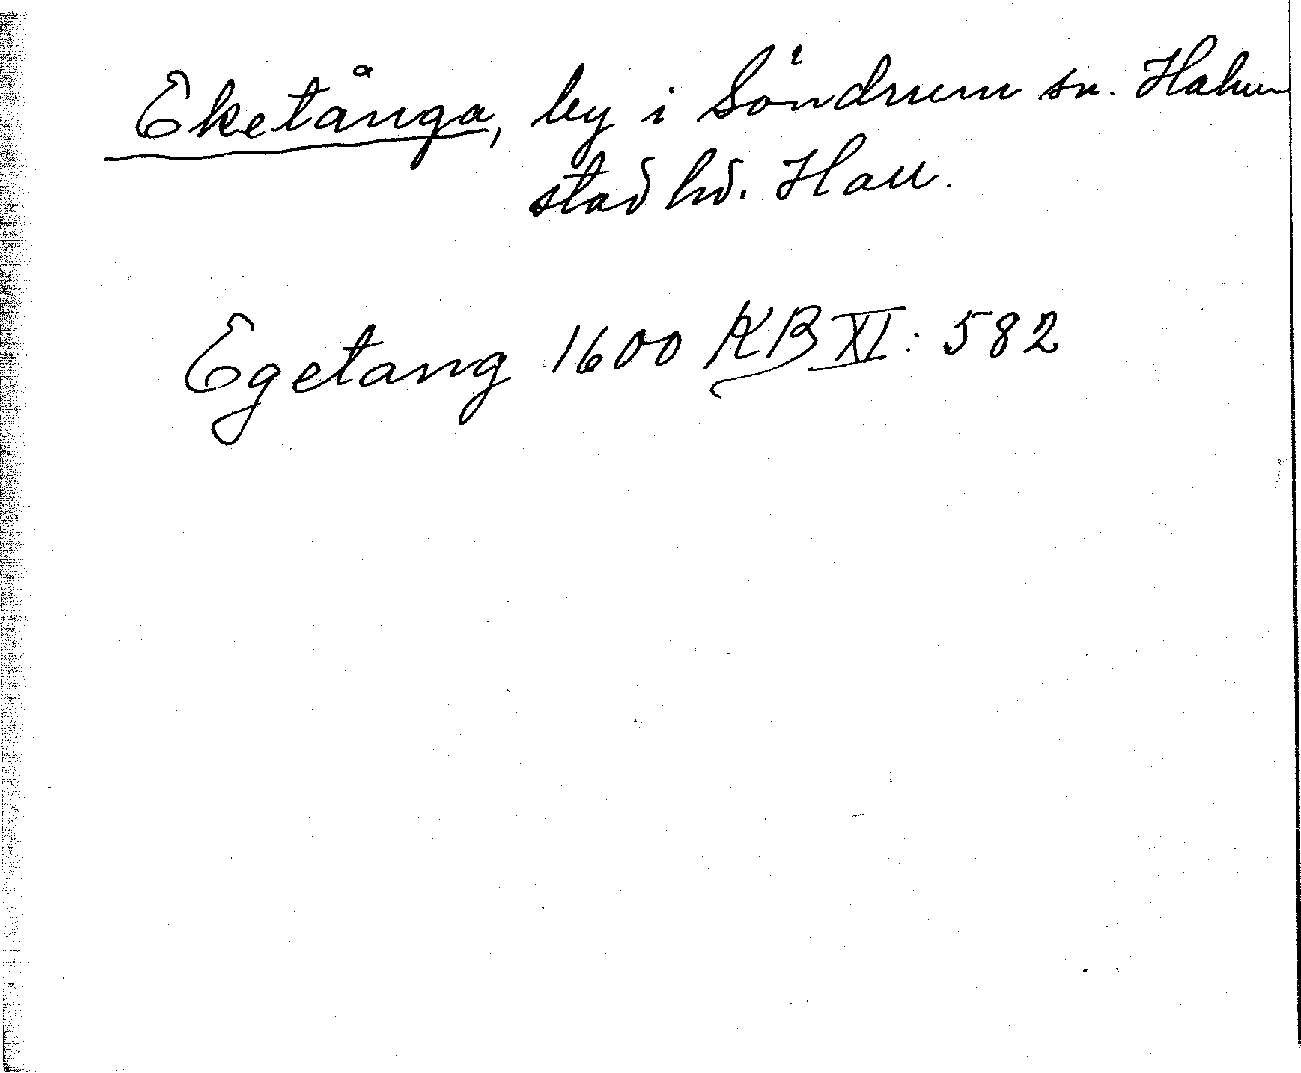 Eketånga, by i Söndrum sn. Halm
stad hd. Hall.
Egetang 1600 KB XI: 582